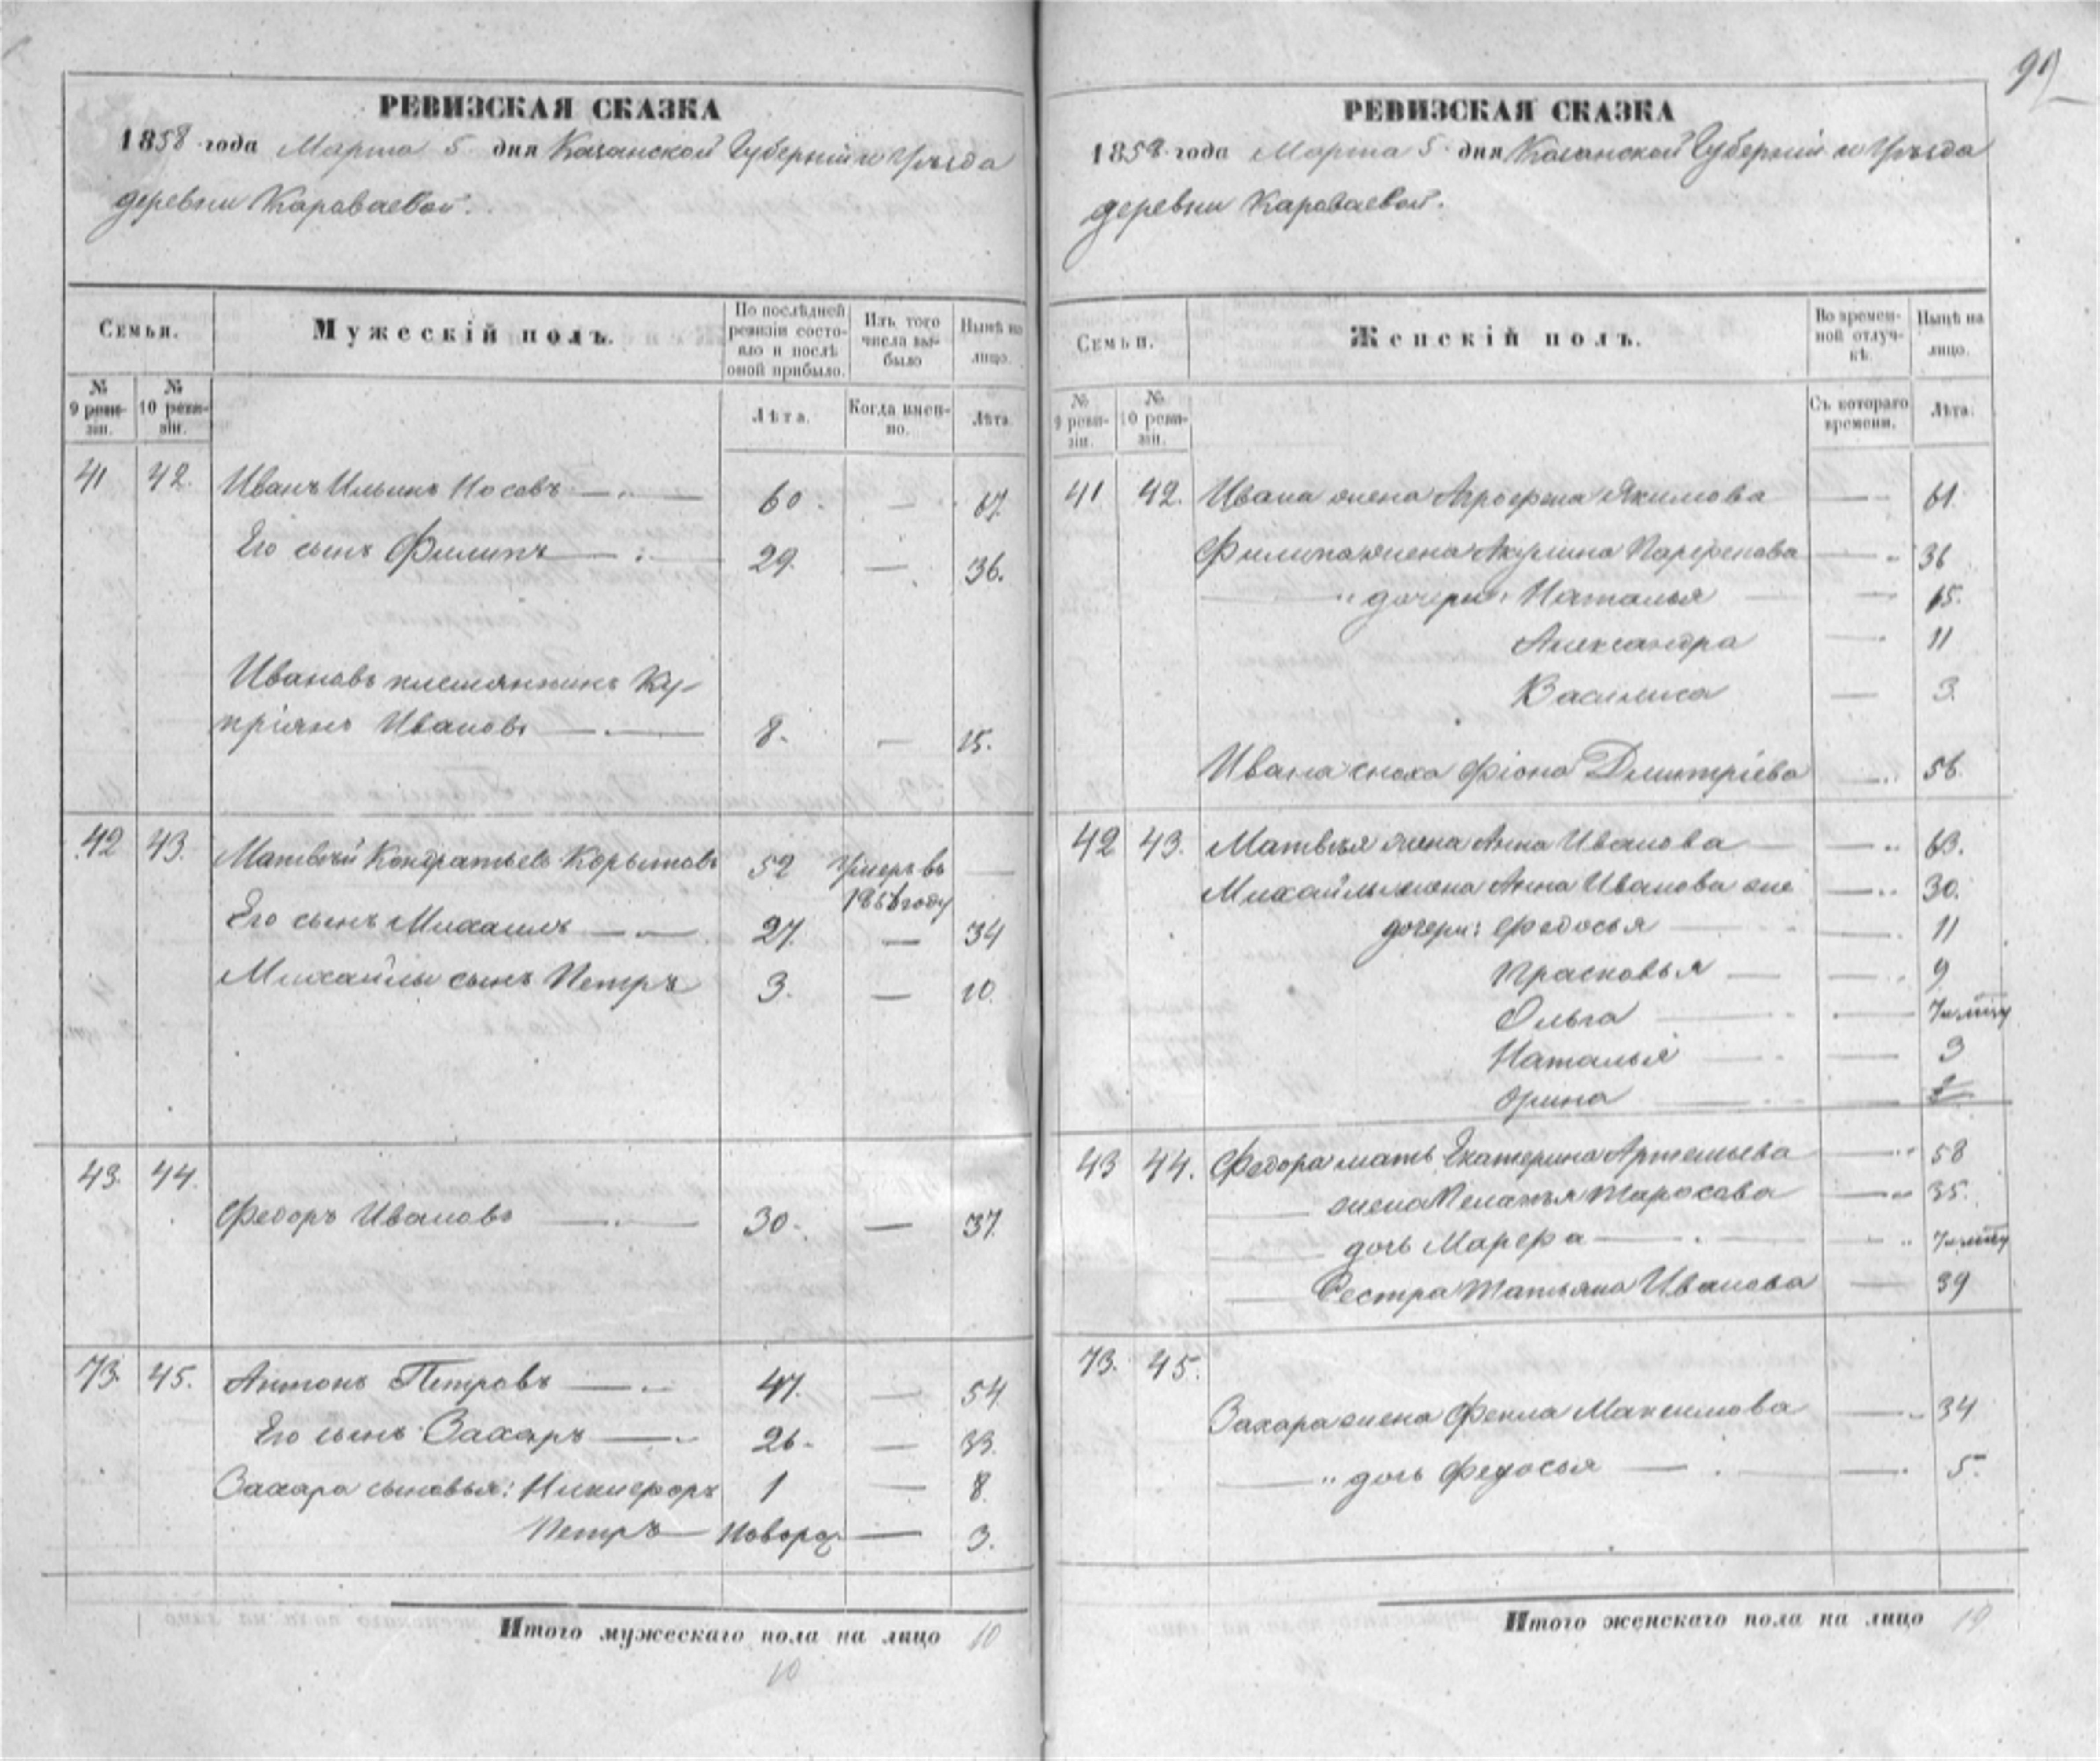 99
РЕВИЗСКАЯ СКАЗКА
1858 года Марта 5 дня Казанской Губерніи и Уѣзда
деревни Караваевой.
Семьи.
Мужескій полъ.
По послѣдней ревизіи состояло и послѣ оной прибыло.
Изъ того числа выбыло
Нынѣ на лицо.
№ 9 ревизіи.
№ 10 ревизіи.
Лѣта.
Когда именно.
Лѣта.
41 42. Иванъ Ильинъ Носовъ 60 — 67.
Его сынъ Филипъ 29. — 36.
Ивановъ племянникъ Ку-
пріянъ Ивановъ 8. — 15.
42 43. Матвѣй Кондратьевъ Корытовъ 52 Умеръ въ —
году
Его сынъ Михаилъ 27. — 34
Михайлы сынъ Петръ 3. — 10.
43. 44.
Федоръ Ивановъ 30. — 37.
73. 45. Антонъ Петровъ 47. — 54
Его сынъ Захаръ 26. — 33.
Захара сыновья: Никифоръ 1 — 8.
Петръ Новорож — 3.
Итого мужескаго пола на лицо 10
10
РЕВИЗСКАЯ СКАЗКА
1858 года Марта 5 дня Казанской Губерніи и Уѣзда
деревни Караваевой.
Семьи.
Женскій полъ.
Во временной отлучкѣ.
Нынѣ на лицо.
№ 9 ревизіи.
№ 10 ревизіи.
Съ котораго времени.
Лѣта.
41 42. Ивана жена Агрофена Якимова — 61.
Филипа жена Акулина Парфенова — 36
" дочери: Наталья — 15.
Александра — 11
Василиса — 3.
Ивана сноха Фіона Дмитріева — 56.
42 43. Матвѣя жена Анна Иванова — 63.
Михайлы жена Анна Иванова — 30.
дочери: Федосья — 11
Прасковья — 9.
Ольга —
Наталья — 3
Орина —
43 44. Федора мать Екатерина Артемьева — 58
жена Пелагея Тарасова — 35.
дочь Марфа —
Сестра Татьяна Иванова — 39
73. 45.
Захара жена Фекла Максимова — 34
" дочь Федосья — 5.
Итого женскаго пола на лицо 19